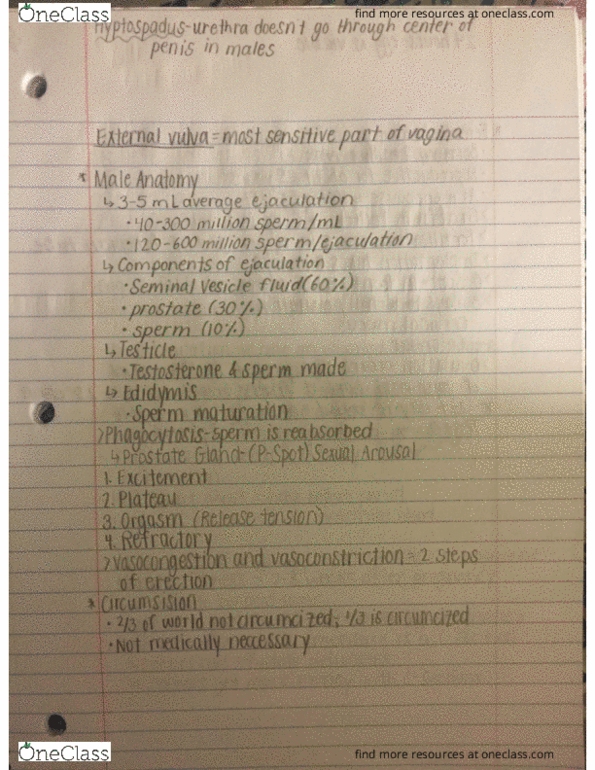 OneClass
find more resources at oneclass.com
Hyptospadus-urethra doesn't go through center of
penis in males
External vulva = most sensitive part of vagina
* Male Anatomy
↳ 3-5 mL average ejaculation
• 40-300 million sperm/mL
• 120-600 million sperm/ejaculation
↳ Components of ejaculation
• Seminal Vesicle fluid (60%)
• prostate (30%)
• sperm (10%)
↳ Testicle
• Testosterone & sperm made
↳ Edidymis
• Sperm maturation
> Phagocytosis-sperm is reabsorbed
↳ Prostate Gland-(P-Spot) Sexual Arousal
1. Excitement
2. Plateau
3. Orgasm (Release tension)
4. Refractory
> Vasocongestion and vasoconstriction = 2 steps
of erection
* Circumsision
• 2/3 of world not circumcized; 1/3 is circumcized
• Not medically neccessary
OneClass
find more resources at oneclass.com